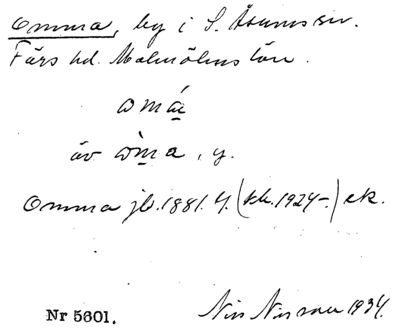 Omma, by i S. Åsums sn.
Färs hd. Malmöhus län.
ωmá
äv. ὼma, y.
Omma jb. 1881. 4. (kk. 1924-.) ek.
Nr 5601. Nils Nilsson 1934.